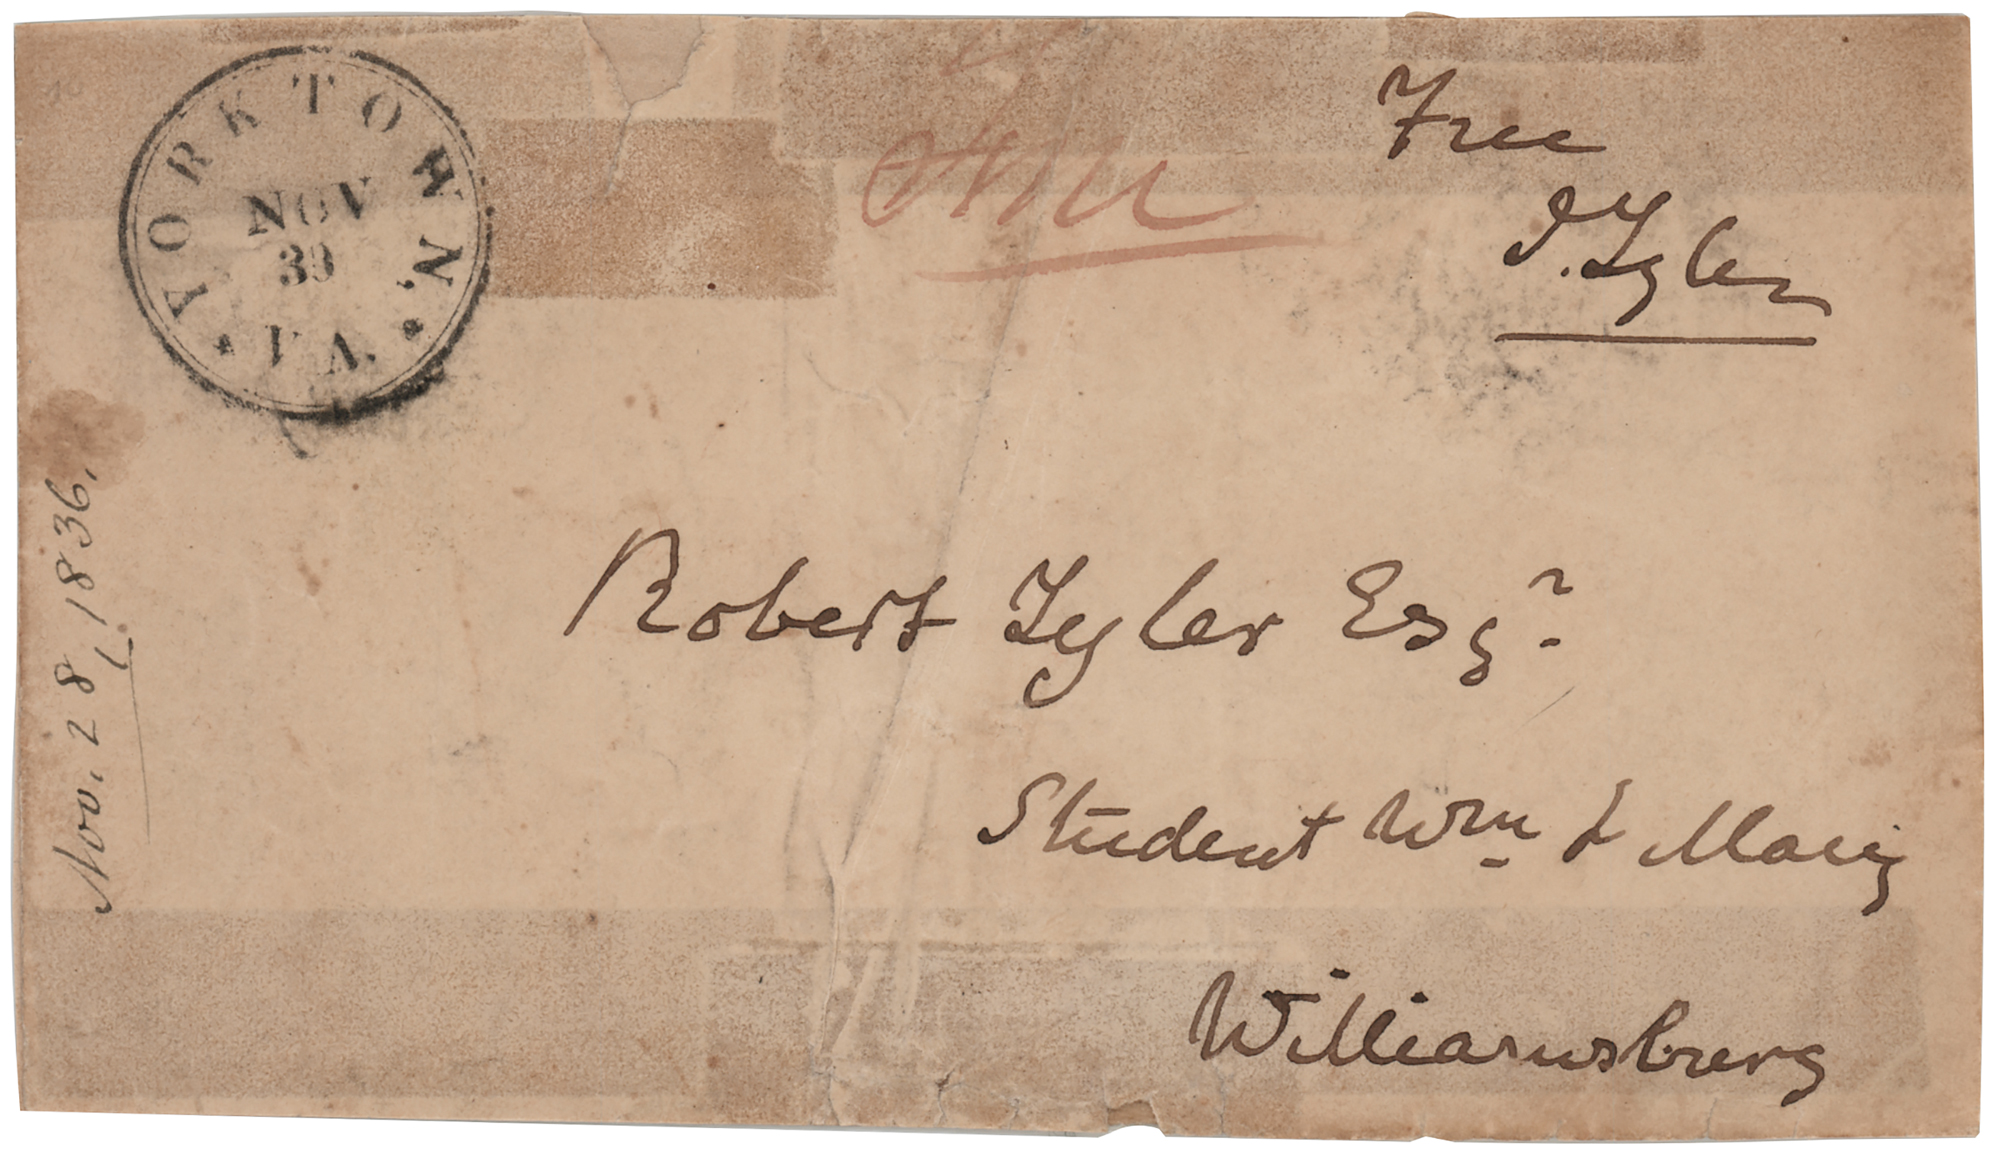 YORKTOWN,
NOV
30
VA.
Free
J. Tyler
Robert Tyler Esqr.
Student Wm & Mary
Williamsburg
Nov. 28, 1836.